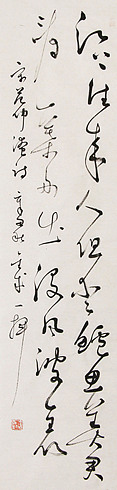 江上往來人但愛鱸魚美君
看一葉舟出沒風波里
宋范仲淹詩